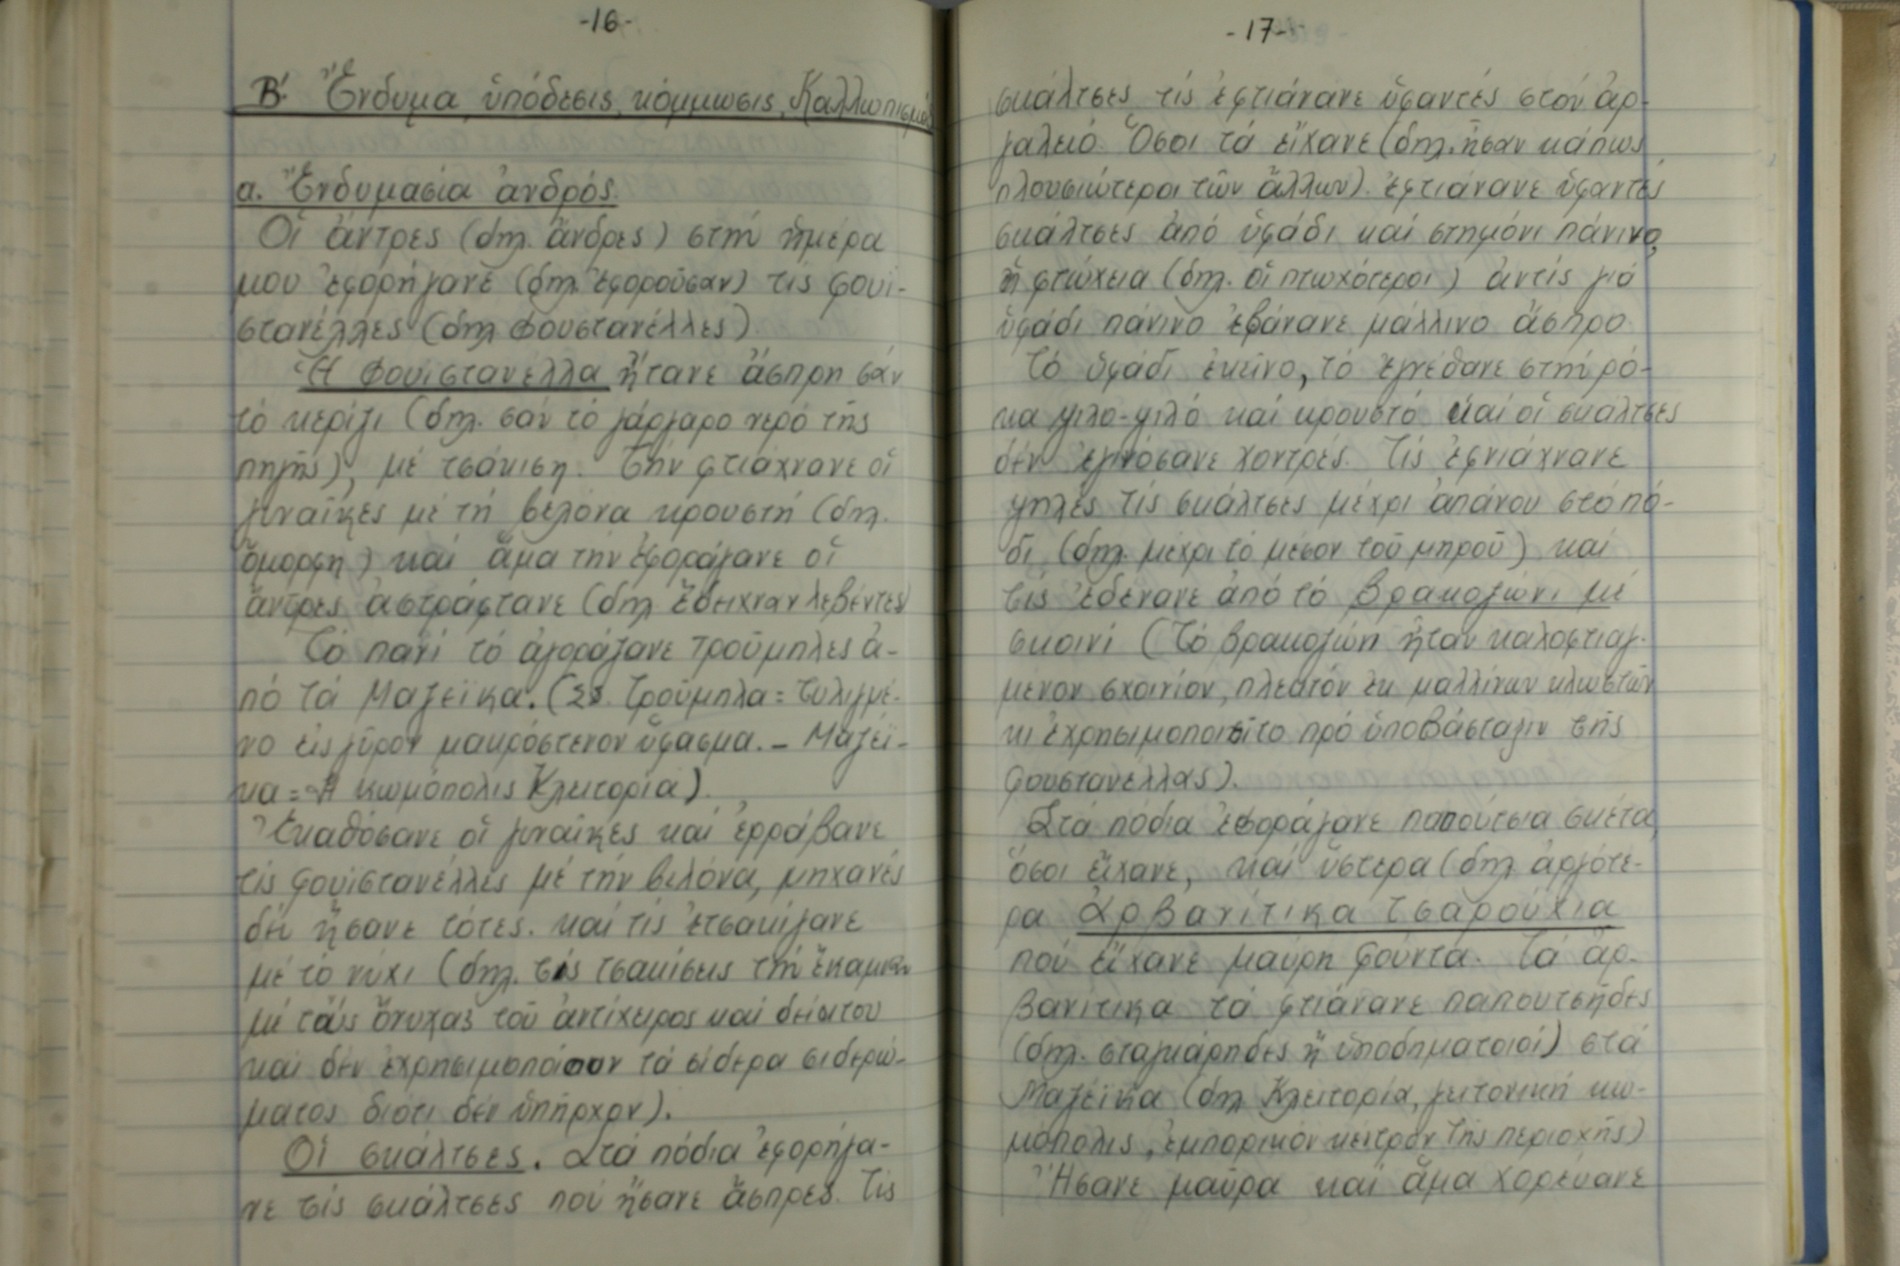 -16-
Β΄. Ἔνδυμα, ὑπόδεσις, κόμμωσις, Καλλωπισμός
α. Ἐνδυμασία ἀνδρός.
Οἱ ἄντρες (δηλ. ἄνδρες) στήν ἡμέρα
μου ἐφορήγανε (δηλ. ἐφοροῦσαν) τίς φουι-
στανέλλες (δηλ. φουστανέλλες).
Ἡ φουιστανέλλα ἤτανε ἄσπρη σάν
τό κερίγι (δηλ. σάν τό γάργαρο νερό τῆς
πηγῆς), μέ τσάκιση. Τήν φτιάχνανε οἱ
γυναῖκες μέ τή βελόνα κρουστή (δηλ.
ὄμορφη) καί ἅμα τήν ἐφοράγανε οἱ
ἄντρες ἀστράφτανε (δηλ. ἔδειχναν λεβέντες)
Τό πανί τό ἀγοράζανε τροῦμπλες ἀ-
πό τά Μαζέϊκα. (Σ.Σ. Τροῦμπλα = Τυλιγμέ-
νο εἰς γῦρον μακρόστενον ὕφασμα. - Μαζέϊ-
κα = Ἡ κωμόπολις Κλειτορία).
Ἐκαθόσανε οἱ γυναῖκες καί ἐρράβανε
τίς φουϊστανέλλες μέ τήν βελόνα, μηχανές
δέν ἤσανε τότες. καί τίς ἐτσακίγανε
μέ τό νύχι (δηλ. τίς τσακίσεις τήν ἔκαμναν
μέ τούς ὄνυχας τοῦ ἀντίχειρος καί δείκτου
καί δέν ἐχρησιμοποίουν τά σίδερα σιδερώ-
ματος διότι δέν ὑπῆρχον).
Οἱ σκάλτσες. Στά πόδια ἐφορήγα-
νε τίς σκάλτσες πού ἤσανε ἄσπρες. Τίς
-17-
σκάλτσες τίς ἐφτιάνανε ὑφαντές στόν ἀρ-
γαλειό. Ὅσοι τά εἴχανε (δηλ. ἦσαν κάπως
πλουσιώτεροι τῶν ἄλλων) ἐφτιάνανε ὑφαντές
σκάλτσες ἀπό ὑφάδι καί στημόνι πάνινο,
ἡ φτώχεια (δηλ. οἱ πτωχότεροι) ἀντίς γιά
ὑφάδι πάνινο ἐβάνανε μάλλινο ἄσπρο
Τό ὑφάδι ἐκεῖνο, τό ἐγνέθανε στήν ρό-
κα ψιλό-ψιλό καί κρουστό καί οἱ σκάλτσες
δέν ἐγινόσανε χοντρές. Τίς ἐφνιάχνανε
ψηλές τίς σκάλτσες μέχρι ἀπάνου στό πό-
δι (δηλ. μέχρι τό μέσον τοῦ μηροῦ) καί
τίς ἐδένανε ἀπό τό βρακοζώνι μέ
σκοινί (Τό βρακοζώνι ἦταν καλοφτιαγ-
μένον σχοινίον, πλεκτόν ἐκ μαλλίνων κλωστῶν
κι ἐχρησιμοποιεῖτο πρό ὑποβάσταξιν τῆς
φουστανέλλας).
Στά πόδια ἐφοράγανε παπούτσια σκέτα,
ὅσοι εἴχανε, καί ὕστερα (δηλ. ἀργότε-
ρα Ἀρβανίτικα τσαρούχια
πού εἴχανε μαύρη φούντα. Τά ἀρ-
βανίτικα τά φτιάνανε παπουτσῆδες
(δηλ. σταγκάρηδες ἤ ὑποδηματοιοί) στά
Μαζέϊκα (δηλ. Κλειτορία, γειτονική κω-
μόπολις, ἐμπορικόν κέντρον τῆς περιοχῆς)
Ἤσανε μαῦρα καί ἅμα χορεύανε